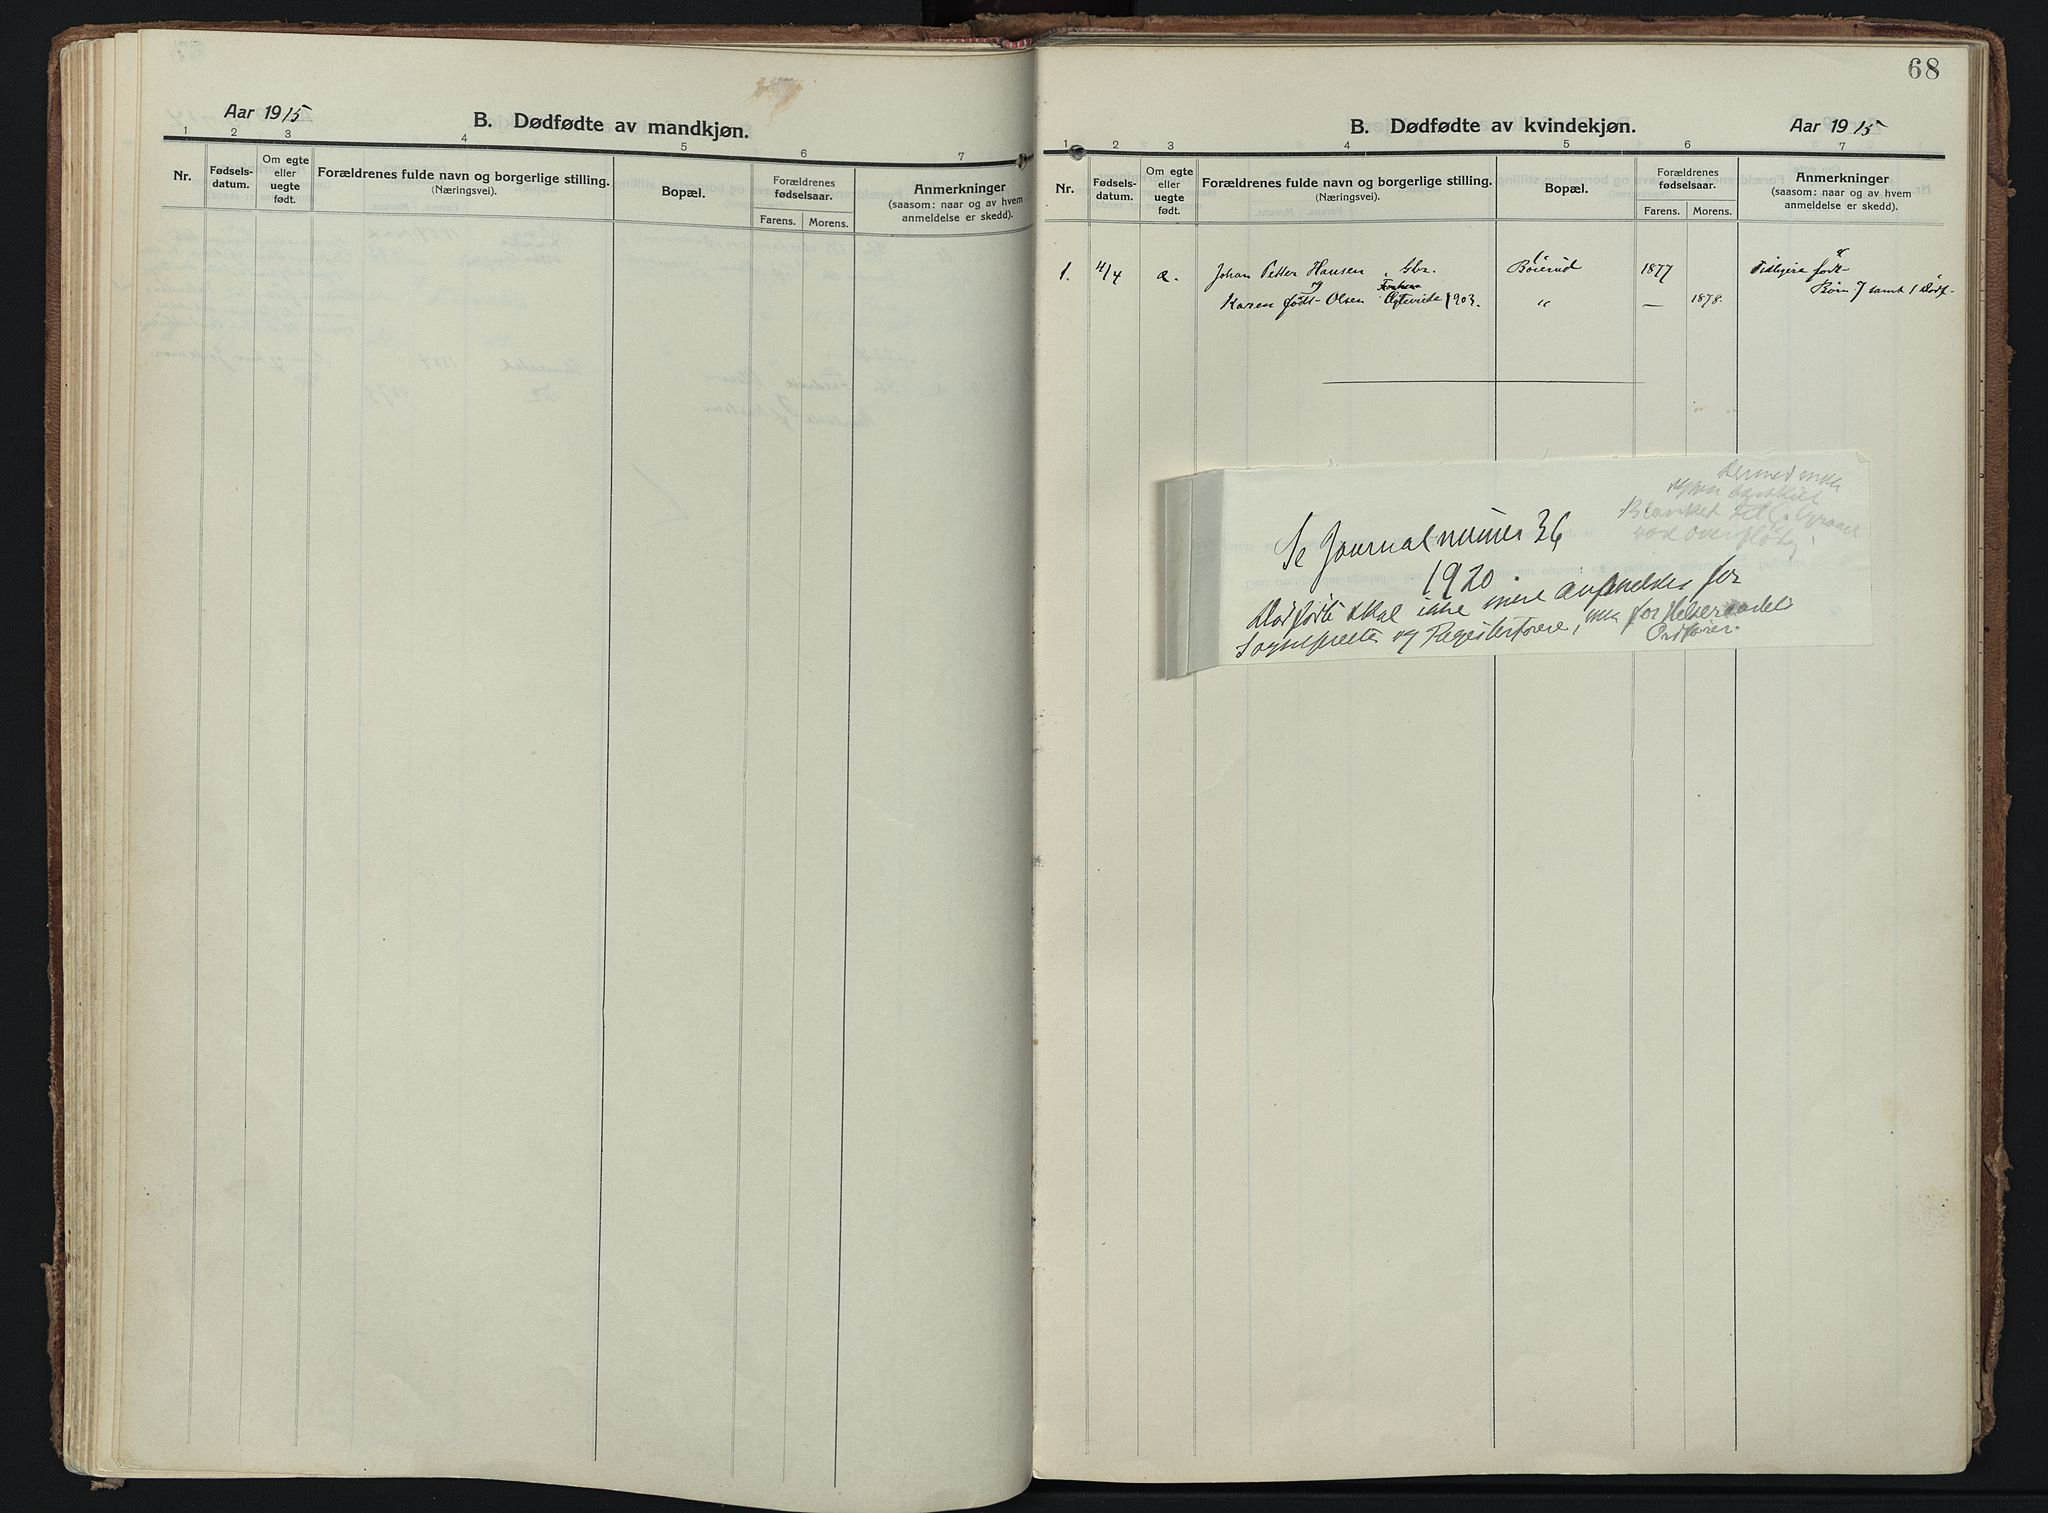 Aar 1915
B. Dødfødte av mandkjøn.
1 2 3 4 5 6 7
Nr.
Fødsels-
datum.
Om egte
eller
uegte
født.
Forældrenes fulde navn og borgerlige stilling.
(Næringsvei).
Bopæl.
Forældrenes
fødselsaar.
Farens. Morens.
Anmerkninger
(saasom: naar og av hvem
anmeldelse er skedd).
68
B. Dødfødte av kvindekjøn.
Aar 1915
1 2 3 4 5 6 7
Nr.
Fødsels-
datum.
Om egte
eller
uegte
født.
Forældrenes fulde navn og borgerlige stilling.
(Næringsvei).
Bopæl.
Forældrenes
fødselsaar.
Farens. Morens.
Anmerkninger
(saasom: naar og av hvem
anmeldelse er skedd).
1. 4/4 æ. Johan Petter Hansen, Gbr. Böierud 1877 Tidligere født
og
Karen født Olsen Egtevide 1903. " — 1878. Börn 7 samt 1 dødf.
Se Journalnummer 36
1920
Dødfødte skal ikke mere anmeldes for
Sogneprester og Registerförere, men for Helseraadets
Ordförer.
Blanket
var overflödig.